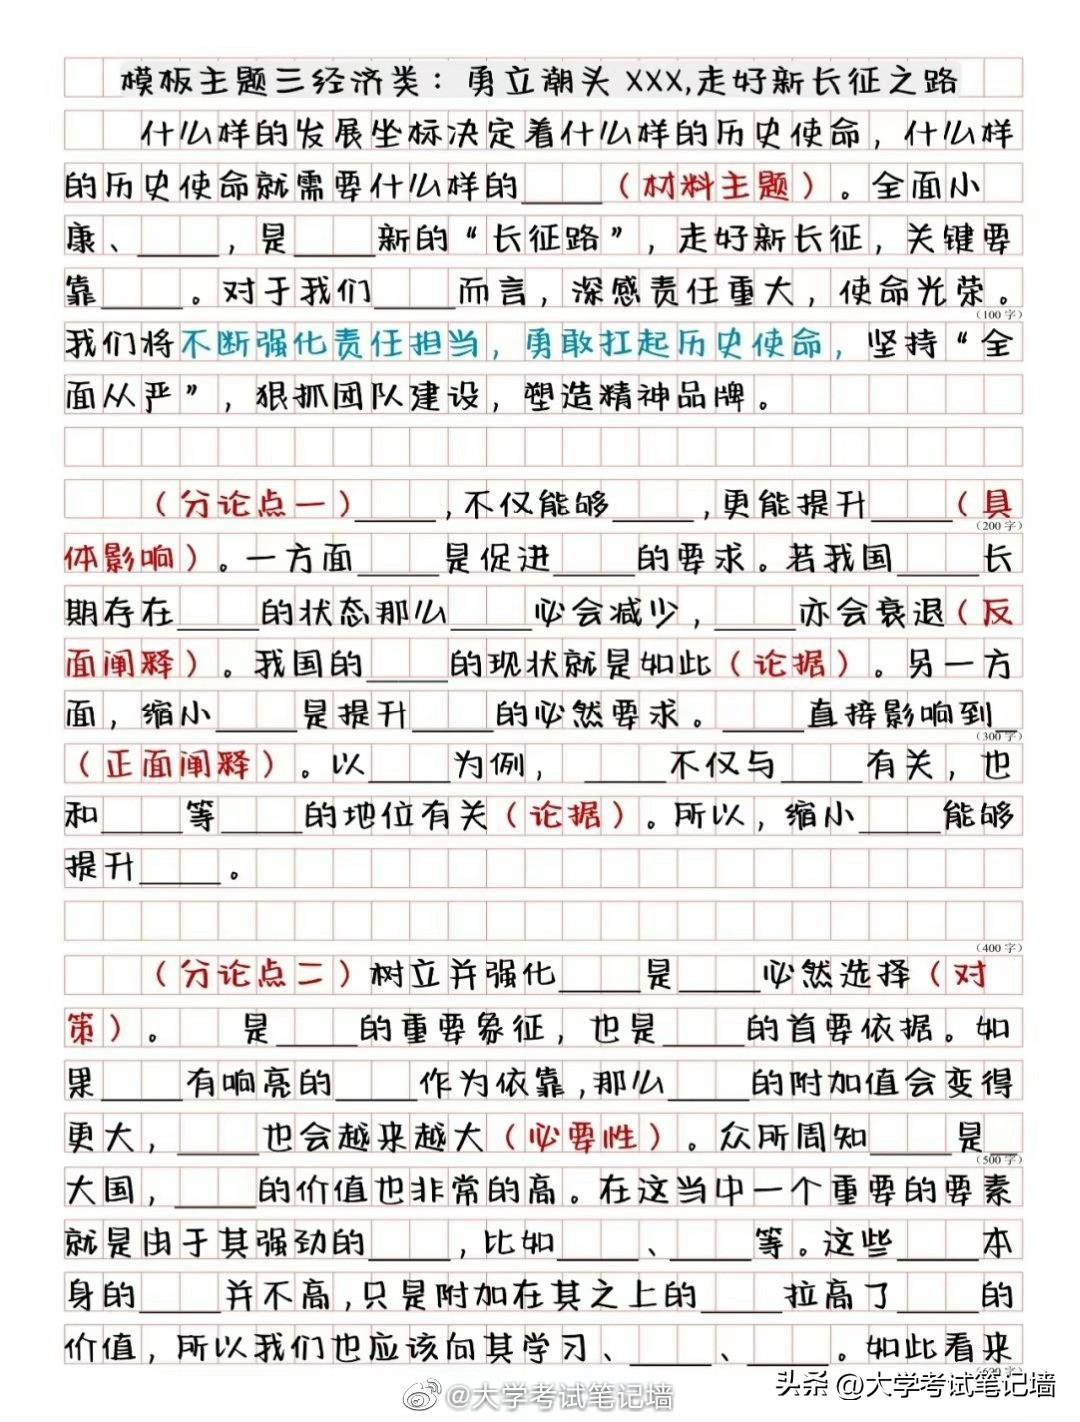 模板主题三经济类：勇立潮头XXX,走好新长征之路
什么样的发展坐标决定着什么样的历史使命，什么样
的历史使命就需要什么样的____（材料主题）。全面小
康、____，是____新的“长征路”，走好新长征，关键要
靠____。对于我们____而言，深感责任重大，使命光荣。
（100字）
我们将不断强化责任担当，勇敢扛起历史使命，坚持“全
面从严”，狠抓团队建设，塑造精神品牌。
（分论点一）____,不仅能够____,更能提升____（具
（200字）
体影响）。一方面____是促进____的要求。若我国____长
期存在____的状态那么____必会减少，____亦会衰退（反
面阐释）。我国的____的现状就是如此（论据）。另一方
面，缩小____是提升____的必然要求。____直接影响到_
（300字）
（正面阐释）。以____为例，____不仅与____有关，也
和____等____的地位有关（论据）。所以，缩小____能够
提升____。
（400字）
（分论点二）树立并强化____是____必然选择（对
策）。 是____的重要象征，也是____的首要依据。如
果____有响亮的____作为依靠,那么____的附加值会变得
更大，____也会越来越大（必要性）。众所周知____是_
（500字）
大国，____的价值也非常的高。在这当中一个重要的要素
就是由于其强劲的____,比如____、____等。这些____本
身的____并不高,只是附加在其之上的____拉高了____的
价值，所以我们也应该向其学习、____、____。如此看来
@大学考试笔记墙
头条 @大学考试笔记墙